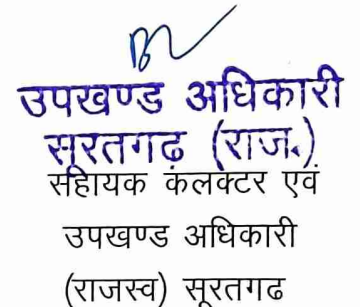 उपखण्ड अधिकारी
सूरतगढ (राज.)
सहायक कलक्टर एवं
उपखण्ड अधिकारी
(राजस्व) सूरतगढ